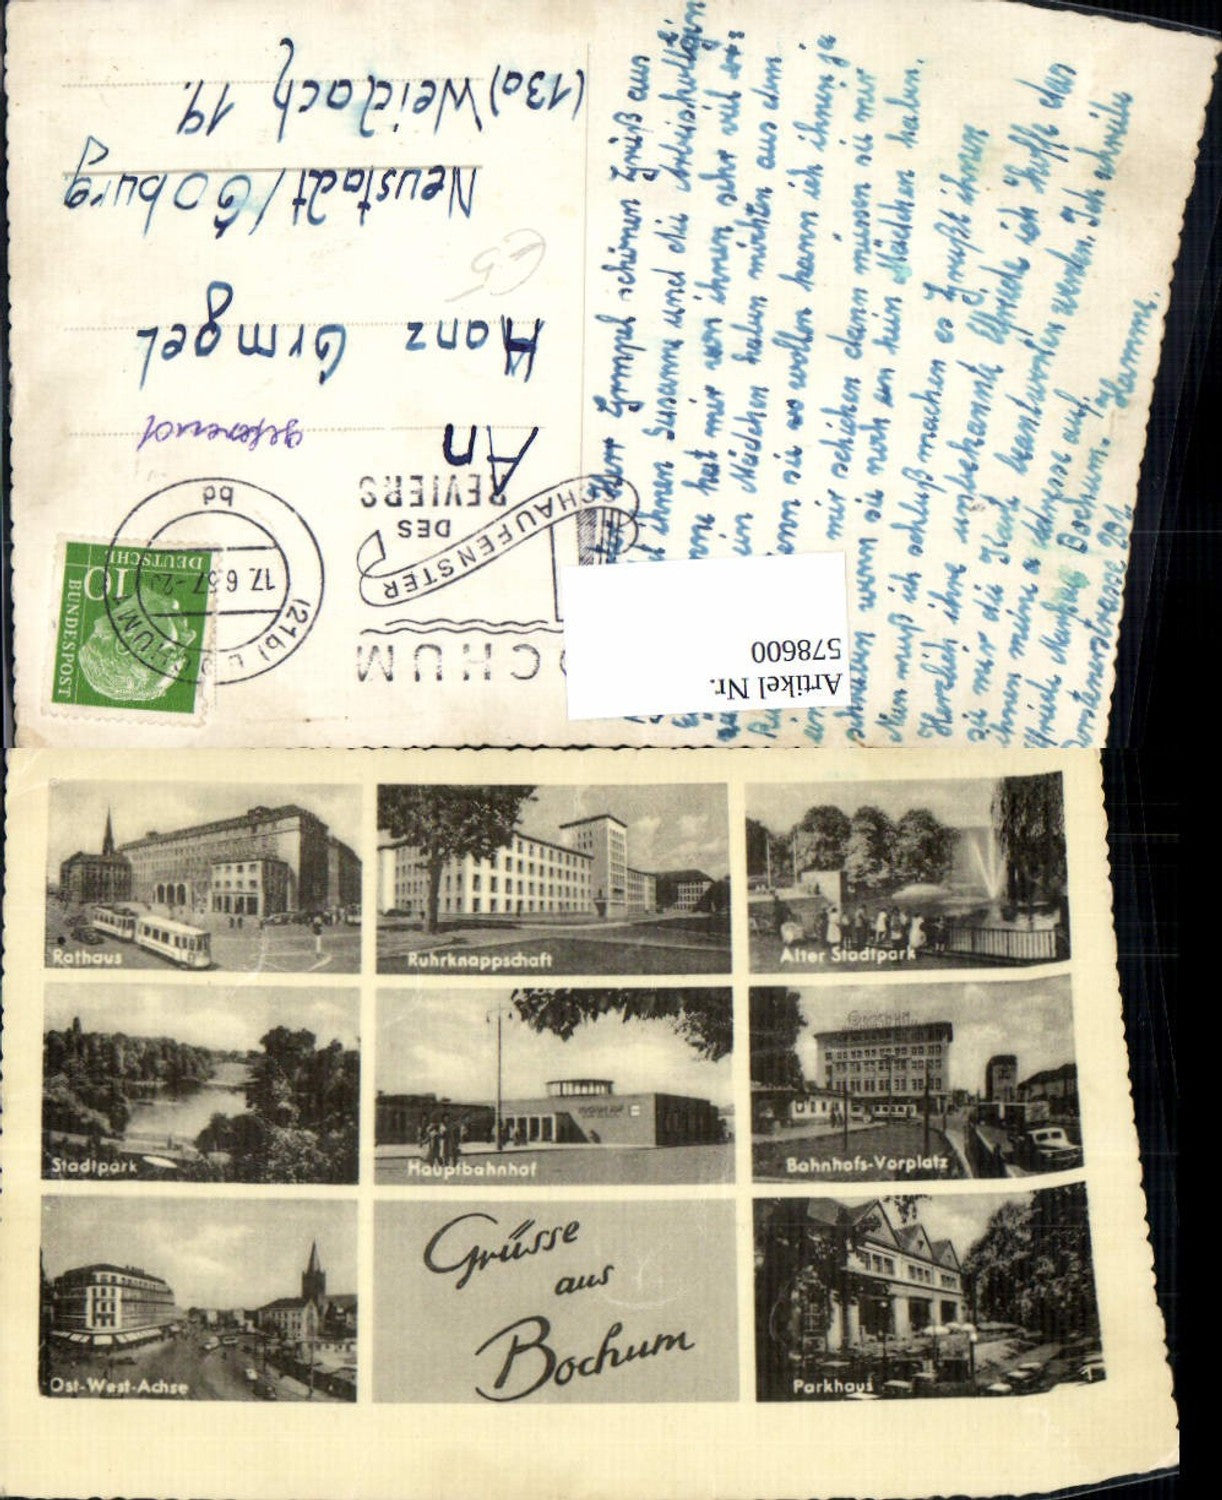 BUNDESPOST
DEUTSCHE
10
(21b) BOCHUM
17.6.57
bd
BOCHUM
SCHAUFENSTER
DES
REVIERS
Artikel Nr.
578600
An
Hanz Grmgel
Neustadt/Coburg
(13a) Weidach 19.
Herr Grmpel schönen Gruß aus
ihnen Susanne und die Arbeitskollegin
hat mir von ihnen sehr viel er=
ein Mädchen haben möchten aus dem
wenn sie es wollen kann ich ihnen ja
mir schicken dann müssen sie mir
schreiben wenn sie noch en kein Mädchen haben.
Nun muß ich schluß machen es Grüßt ihnen
Herzlich ihre unbekannte Elfriede ich hoffe das
sie mir die Karte beantworten werden. Ich schreibe
ihnen meine Adresse auf.
Elfriede Bochum. Hamme.
Dorstenerstrasse 201
Rathaus
Ruhrknappschaft
Alter Stadtpark
Stadtpark
Hauptbahnhof
BOCHUM
Bahnhofs-Vorplatz
Ost-West-Achse
Grüsse
aus
Bochum
Parkhaus